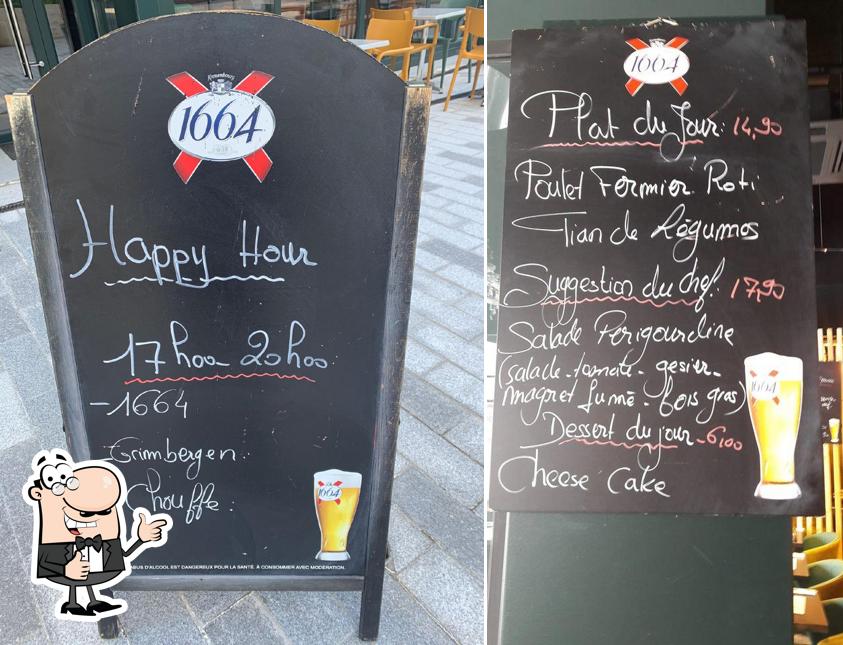 Kronenbourg
1664
Happy Hour
17h00 20h00
-1664
Grimbergen
Chouffe
1664
ABUS D'ALCOOL EST DANGEREUX POUR LA SANTÉ. À CONSOMMER AVEC MODÉRATION.
1664
Plat du Jour: 14,90
Poulet Fermier Roti
Tian de Légumes
Suggestion du chef: 17,90
Salade Perigourdine
(salade - tomate - gesier -
magret fumé - fois gras)
Dessert du jour - 6,00
Cheese Cake
1664